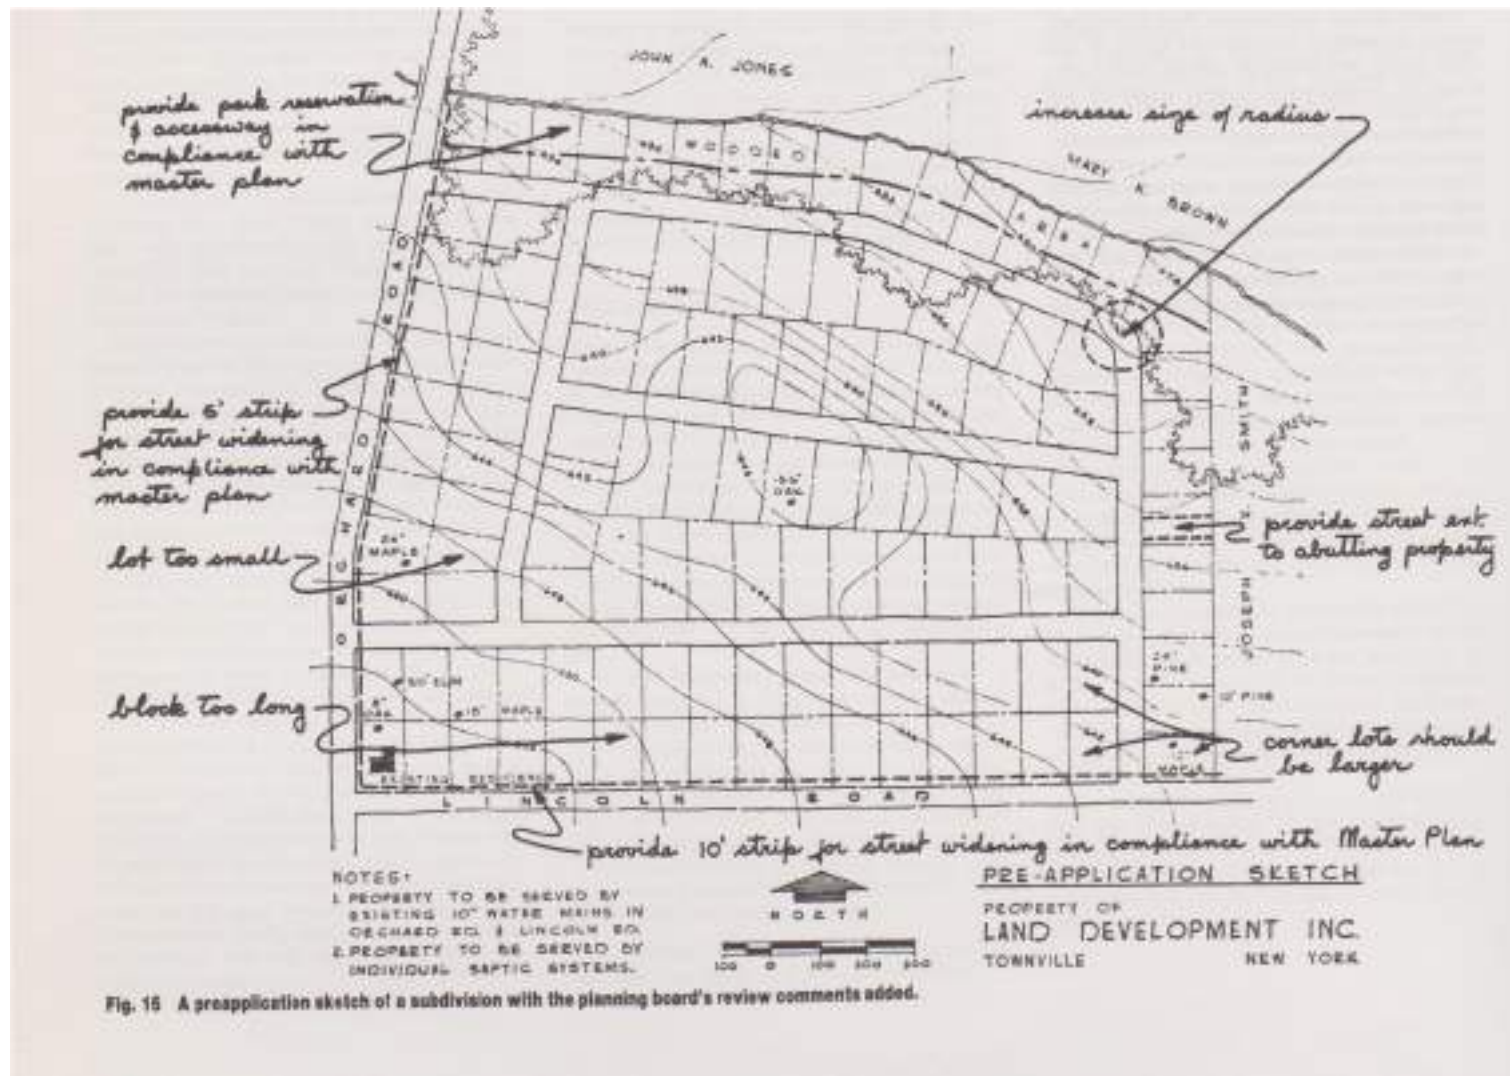 JOHN A. JONES
provide park reservation
& accessway in
compliance with
master plan
increase size of radius
MARY A. BROWN
WOODED
AREA
ORCHARD ROAD
provide 5' strip
for street widening
in compliance with
master plan
JOSEPH SMITH
OAK
lot too small
24"
MAPLE
provide street ext.
to abutting property
block too long
ELM
OAK
MAPLE
24"
PINE
PINE
corner lots should
be larger
EXISTING RESIDENCE
LINCOLN ROAD
provide 10' strip for street widening in compliance with Master Plan
NOTES:
1. PROPERTY TO BE SERVED BY
EXISTING 10" WATER MAINS IN
ORCHARD RD. & LINCOLN RD.
2. PROPERTY TO BE SERVED BY
INDIVIDUAL SEPTIC SYSTEMS.
NORTH
100 0 100 200 300
PRE-APPLICATION SKETCH
PROPERTY OF
LAND DEVELOPMENT INC.
TOWNVILLE NEW YORK
Fig. 16 A preapplication sketch of a subdivision with the planning board's review comments added.